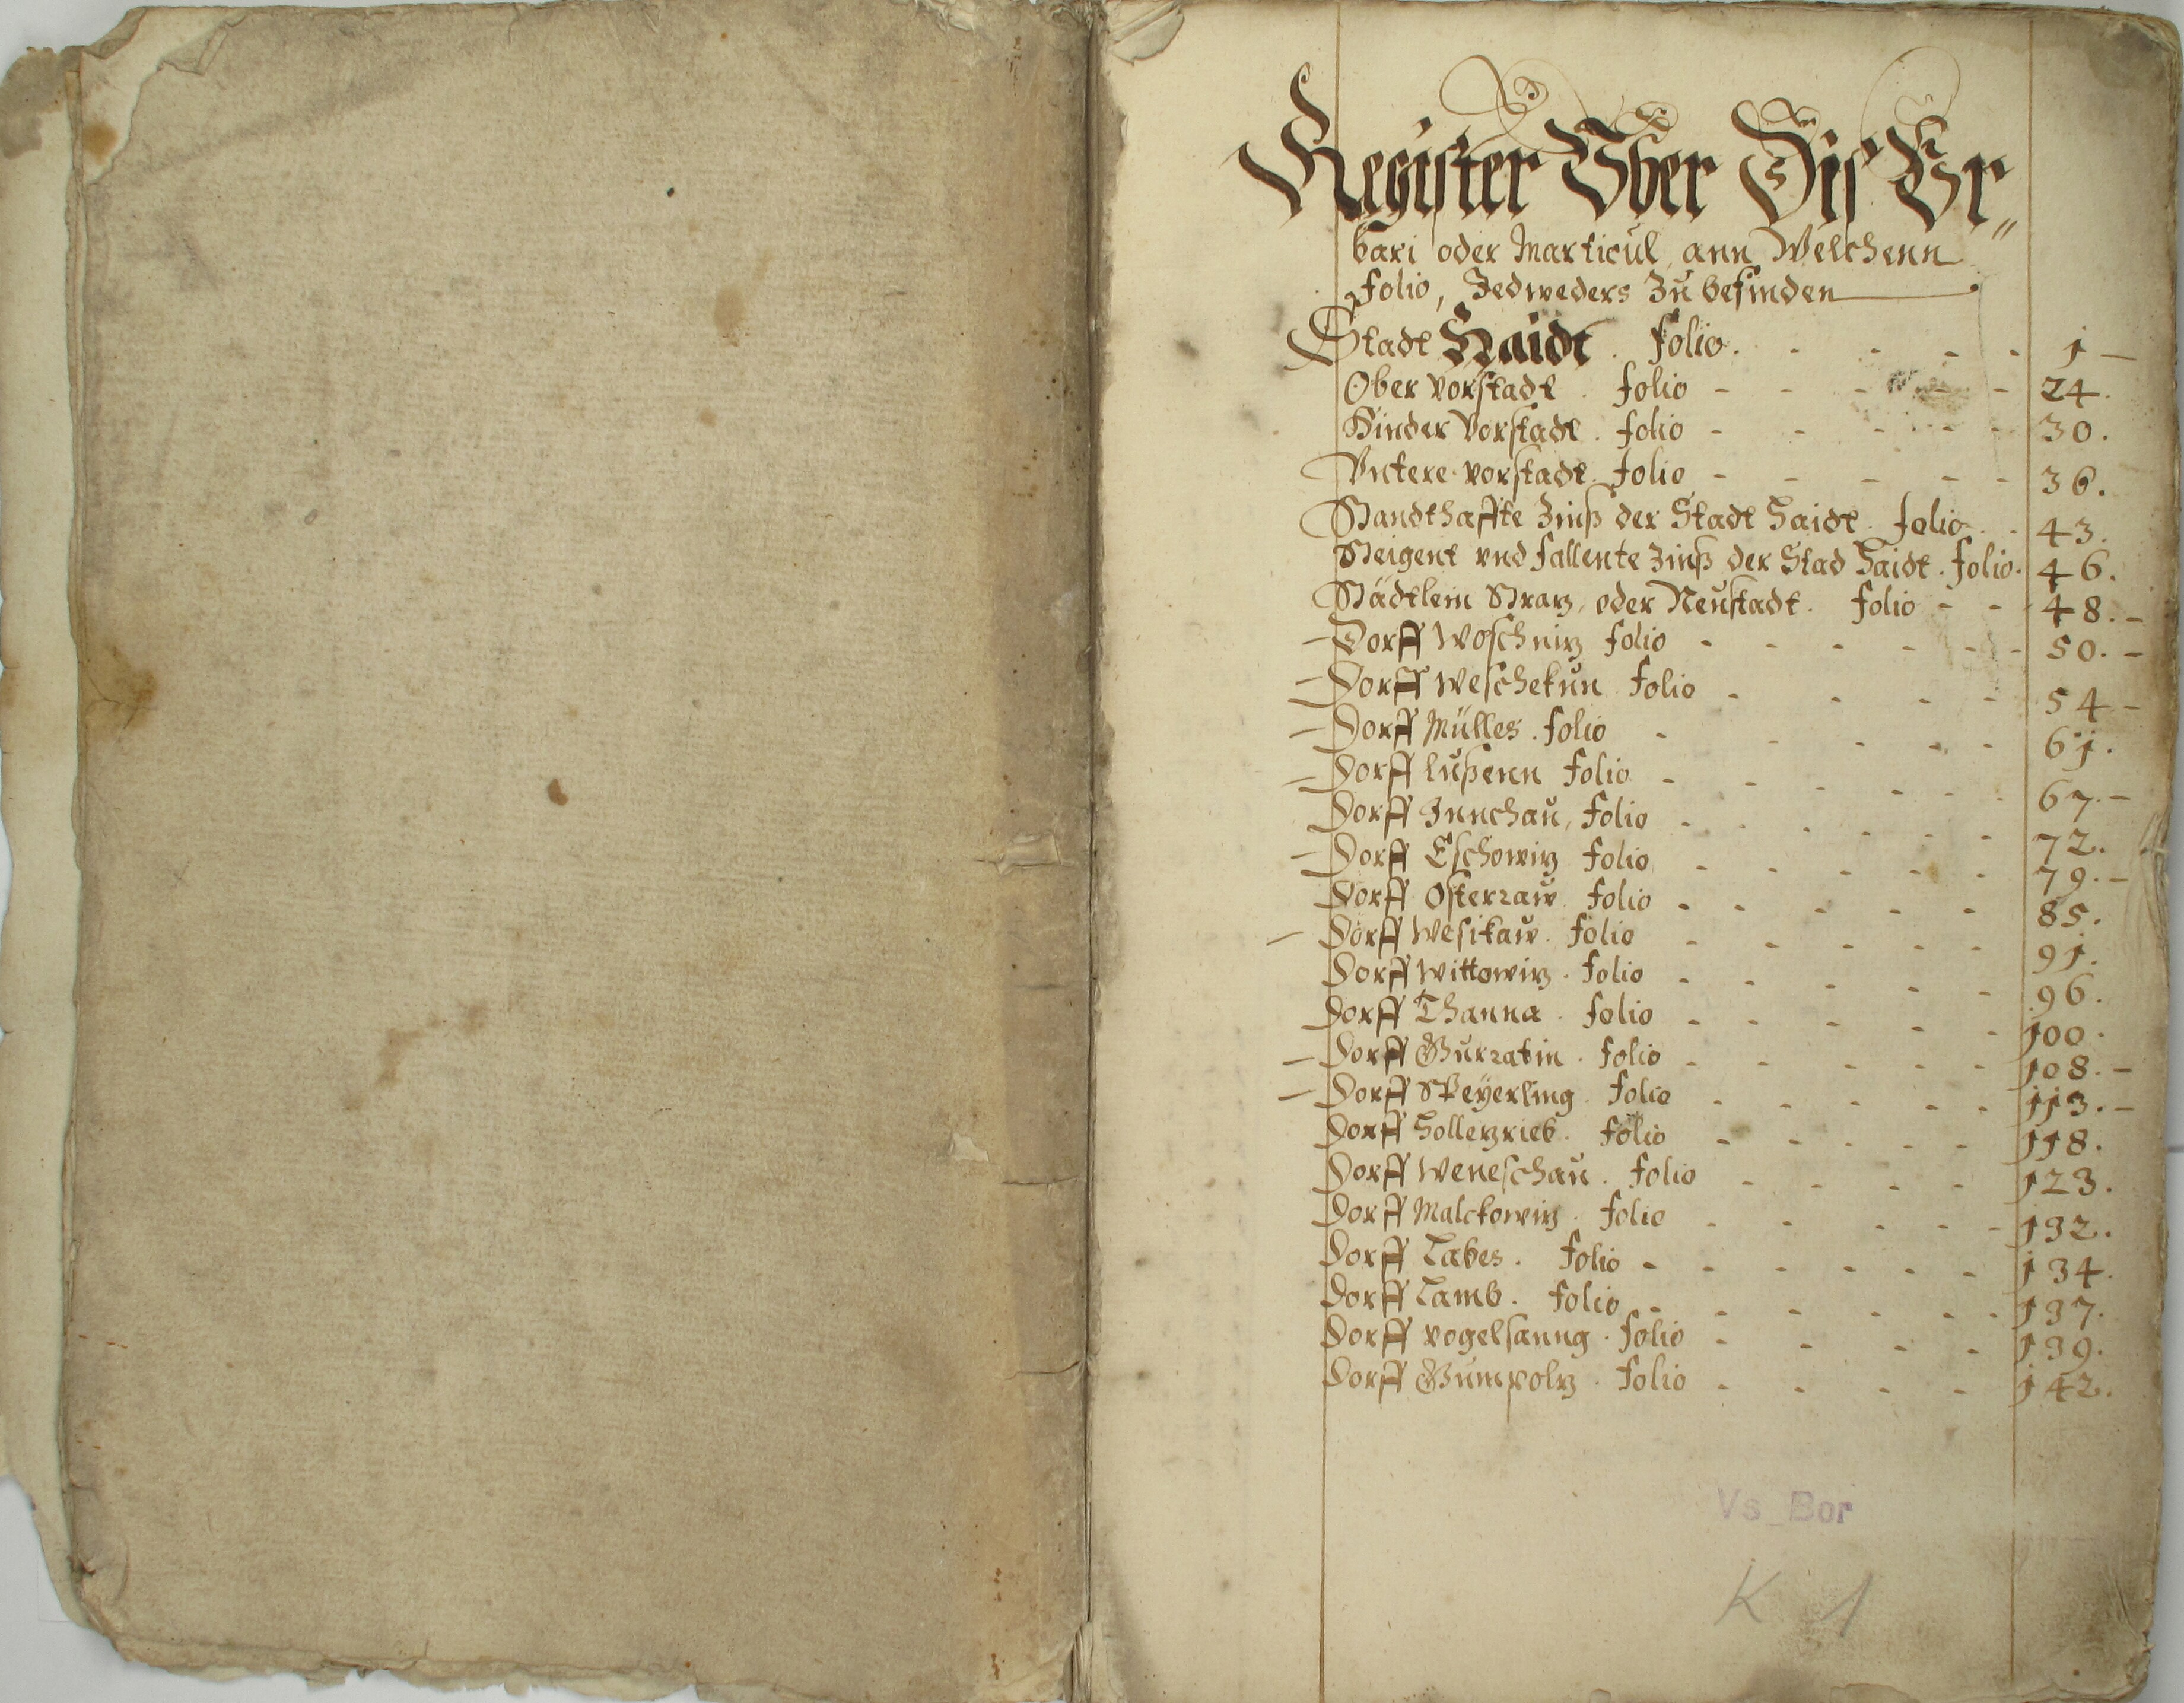 Register Vber Dis Vr„
bari oder Marticul, ann Welchenn
folio, Jedweders Zu befinden
Stadt Haidt. folio. - - - - 1 -
Ober vorstadt. folio - - - - 24.
Hinder Vorstadt. folio - - - - 30.
Vntere vorstadt. folio - - - - 36.
Standthaffte Zinß der Stadt Haidt. folio. - 43.
Steigent vnd fallente Zinß der Stad Haidt. folio. 46.
Städtlein Straz, oder Neustadt. folio - - 48. -
- Dorff Woschniz folio - - - - - 50. -
- Dorff Weschekun folio - - - - 54 -
- Dorff Mülles. folio - - - - - 61.
- Dorff Lußenn folio - - - - - 67. -
Dorff Innchau, folio - - - - - 72.
- Dorff Eschowiz folio - - - - - 79. -
Dorff Osterraw. folio - - - - - 85.
- Dorff Wesikaw. folio - - - - - 91.
Dorff Wittowiz. folio - - - - - 96.
Dorff Thanna. folio - - - - - 100.
- Dorff Gurratin. folio - - - - - 108. -
- Dorff Speÿerling. folio - - - - - 113. -
Dorff Hollezrieb. folio - - - - - 118.
Dorff Weneschau. folio - - - - 123.
Dorff Malckowiz. folio - - - - - 132.
Dorff Labes. folio - - - - - - 134.
Dorff Lamb. folio - - - - - 137.
Dorff vogelsanng. folio - - - - 139.
Dorff Gumpolz. folio - - - - 142.
Vs_Bor
K 1